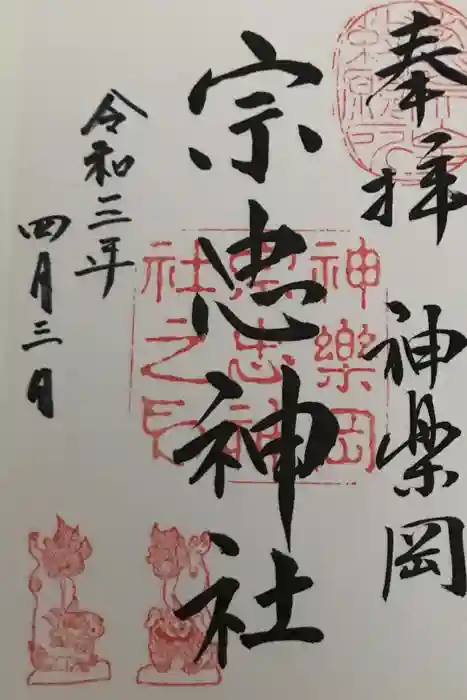 奉拝 神楽岡
宗忠神社
令和三年
四月三日
神樂岡
宗忠神
社之印